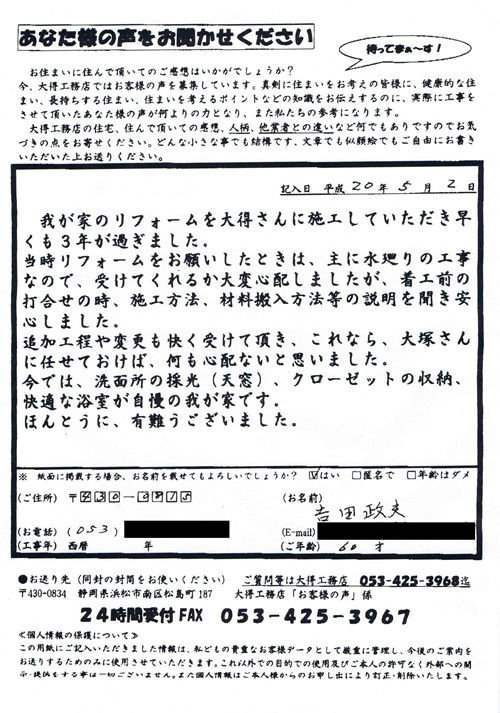 あなた様の声をお聞かせください
待ってまぁ～す！
お住まいに住んで頂いてのご感想はいかがでしょうか？
今、大得工務店ではお客様の声を募集しています。真剣に住まいをお考えの皆様に、健康的な住
まい、長持ちする住まい、住まいを考えるポイントなどの知識をお伝えするのに、実際に工事を
させて頂いたあなた様の声が何よりの力となり、また私たちの参考になります。
大得工務店の住宅、住んで頂いての感想、人柄、他業者との違いなど何でもありですのでお気
づきの点をお寄せください。どんな小さな事でも結構です、文章でも似顔絵でもご自由にお書き
いただいた上お送りください。
記入日 平成 20 年 5 月 2 日
我が家のリフォームを大得さんに施工していただき早
くも３年が過ぎました。
当時リフォームをお願いしたときは、主に水廻りの工事
なので、受けてくれるか大変心配しましたが、着工前の
打合せの時、施工方法、材料搬入方法等の説明を聞き安
心しました。
追加工程や変更も快く受けて頂き、これなら、大塚さん
に任せておけば、何も心配ないと思いました。
今では、洗面所の採光（天窓）、クローゼットの収納、
快適な浴室が自慢の我が家です。
ほんとうに、有難うございました。
※ 紙面に掲載する場合、お名前を載せてもよろしいでしょうか？ ☑はい □匿名で □年齢はダメ
(ご住所) 〒430-0915 (お名前)
吉田政夫
(お電話) (053) (E-mail)
(工事年) 西暦 年 (ご年齢) 60 才
●お送り先（同封の封筒をお使いください） ご質問等は大得工務店 053-425-3968迄
〒430-0834 静岡県浜松市南区松島町187 大得工務店「お客様の声」係
24時間受付FAX 053-425-3967
≪個人情報の保護について≫
この用紙にご記入いただきました情報は、私どもの貴重なお客様データとして厳重に管理し、今後のご案内を
お送りするためのみに使用させていただきます。これ以外での目的での使用及びご本人の許可なく外部への開
示・提供をする事は一切ございません。また個人情報はご本人様からのお申し出により訂正・削除いたします。